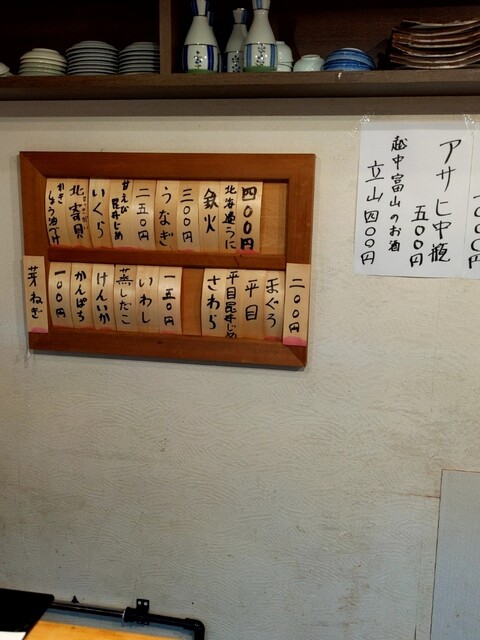 アサヒ中瓶
五〇〇円
越中富山のお酒
立山 四〇〇円
四〇〇円
北海道うに
鉄火
三〇〇円
うなぎ
二五〇円
甘えび
昆布じめ
いくら
北寄貝
二〇〇円
まぐろ
平目
平目昆布じめ
さわら
一五〇円
いわし
蒸しだこ
けんいか
かんぱち
一〇〇円
芽ねぎ